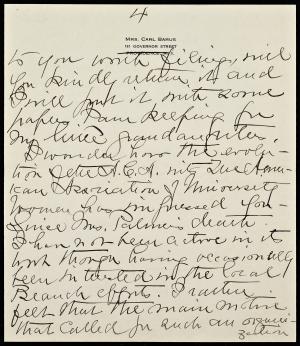 4
MRS. CARL BARUS
151 GOVERNOR STREET
PROVIDENCE, R. I.
to you worth filing, will
you kindly return it and
I will put it with some
papers I am keeping for
my little granddaughter.
I wonder how the evolu-
tion of the A.C.A. into the Amer-
ican Association of University
Women has impressed you
since Mrs. Palmer's death.
I have not been active in its
work though having occasionally
been interested in the local
Branch efforts. I rather
felt that the main motive
that called for such an organi-
zation